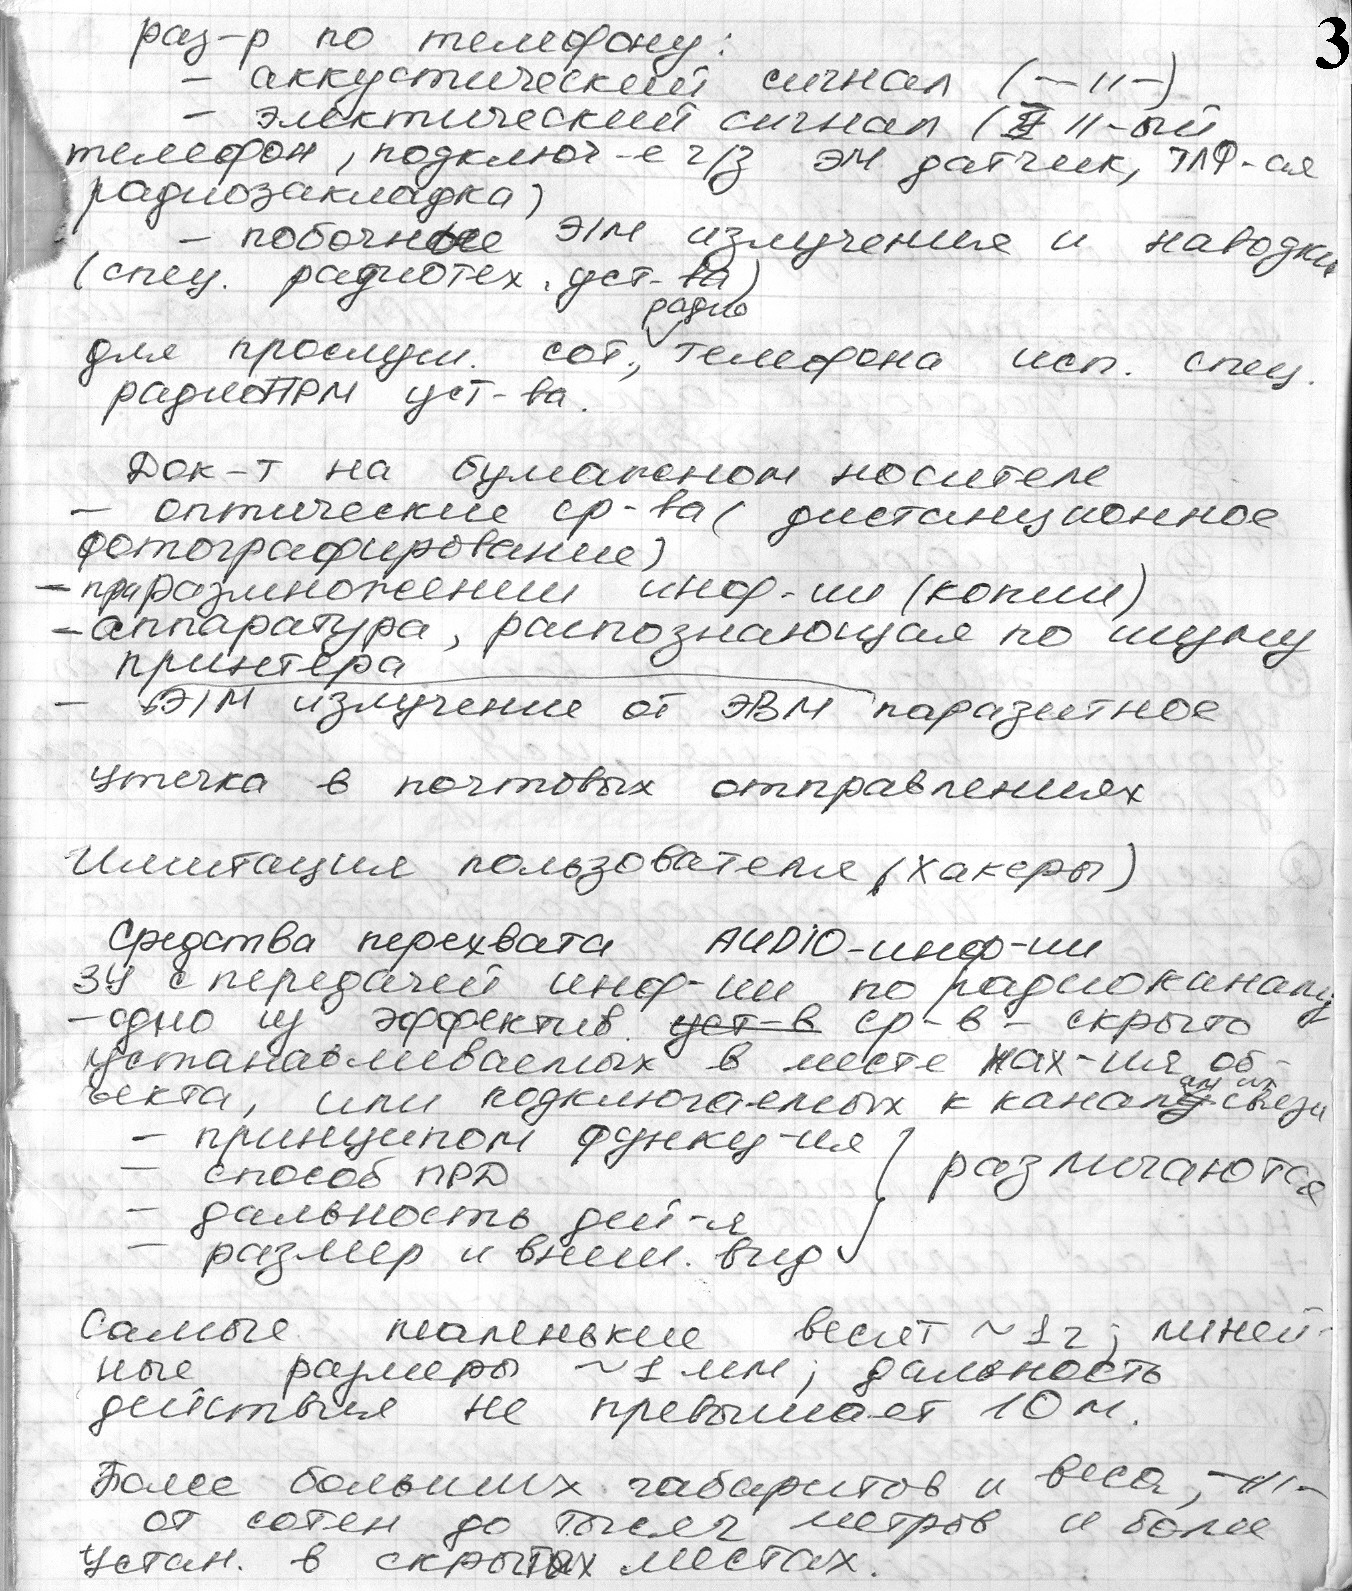 3
раз-р по телефону:
- аккустический сигнал (—11—)
- электический сигнал ( II-ый
телефон, подключ-е ч/з ЭМ датчик, ТЛФ-ая
радиозакладка)
- побочные Э/М излучения и наводки
(спец. радиотех. уст-ва)
радио
для прослуш. сот., телефона исп. спец.
радиоПРМ уст-ва.
Док-т на бумажном носителе
- оптические ср-ва (дистанционное
фотографирование)
- при размножении инф-ии (копии)
- аппаратура, распознающая по шуму
принтера
- Э/М излучение от ЭВМ паразитное
Утечка в почтовых отправлениях
Имитация пользователя (хакеры)
Средства перехвата AUDIO-инф-ии
ЗУ с передачей инф-ии по радиоканалу
- одно из эффектив. уст-в ср-в - скрыто
устанавливаемых в месте нах-ия об-
ъекта, или подключаемых к каналу связи
- принципом функц-ия
- способ ПРД
различаются
- дальность дей-я
- размер и внеш. вид
Самые маленькие весят ~1г; линей-
ные размеры ~1мм; дальность
действия не превышает 10м.
Более больших габаритов и веса, —11—
от сотен до тысяч метров и более
устан. в скрытых местах.